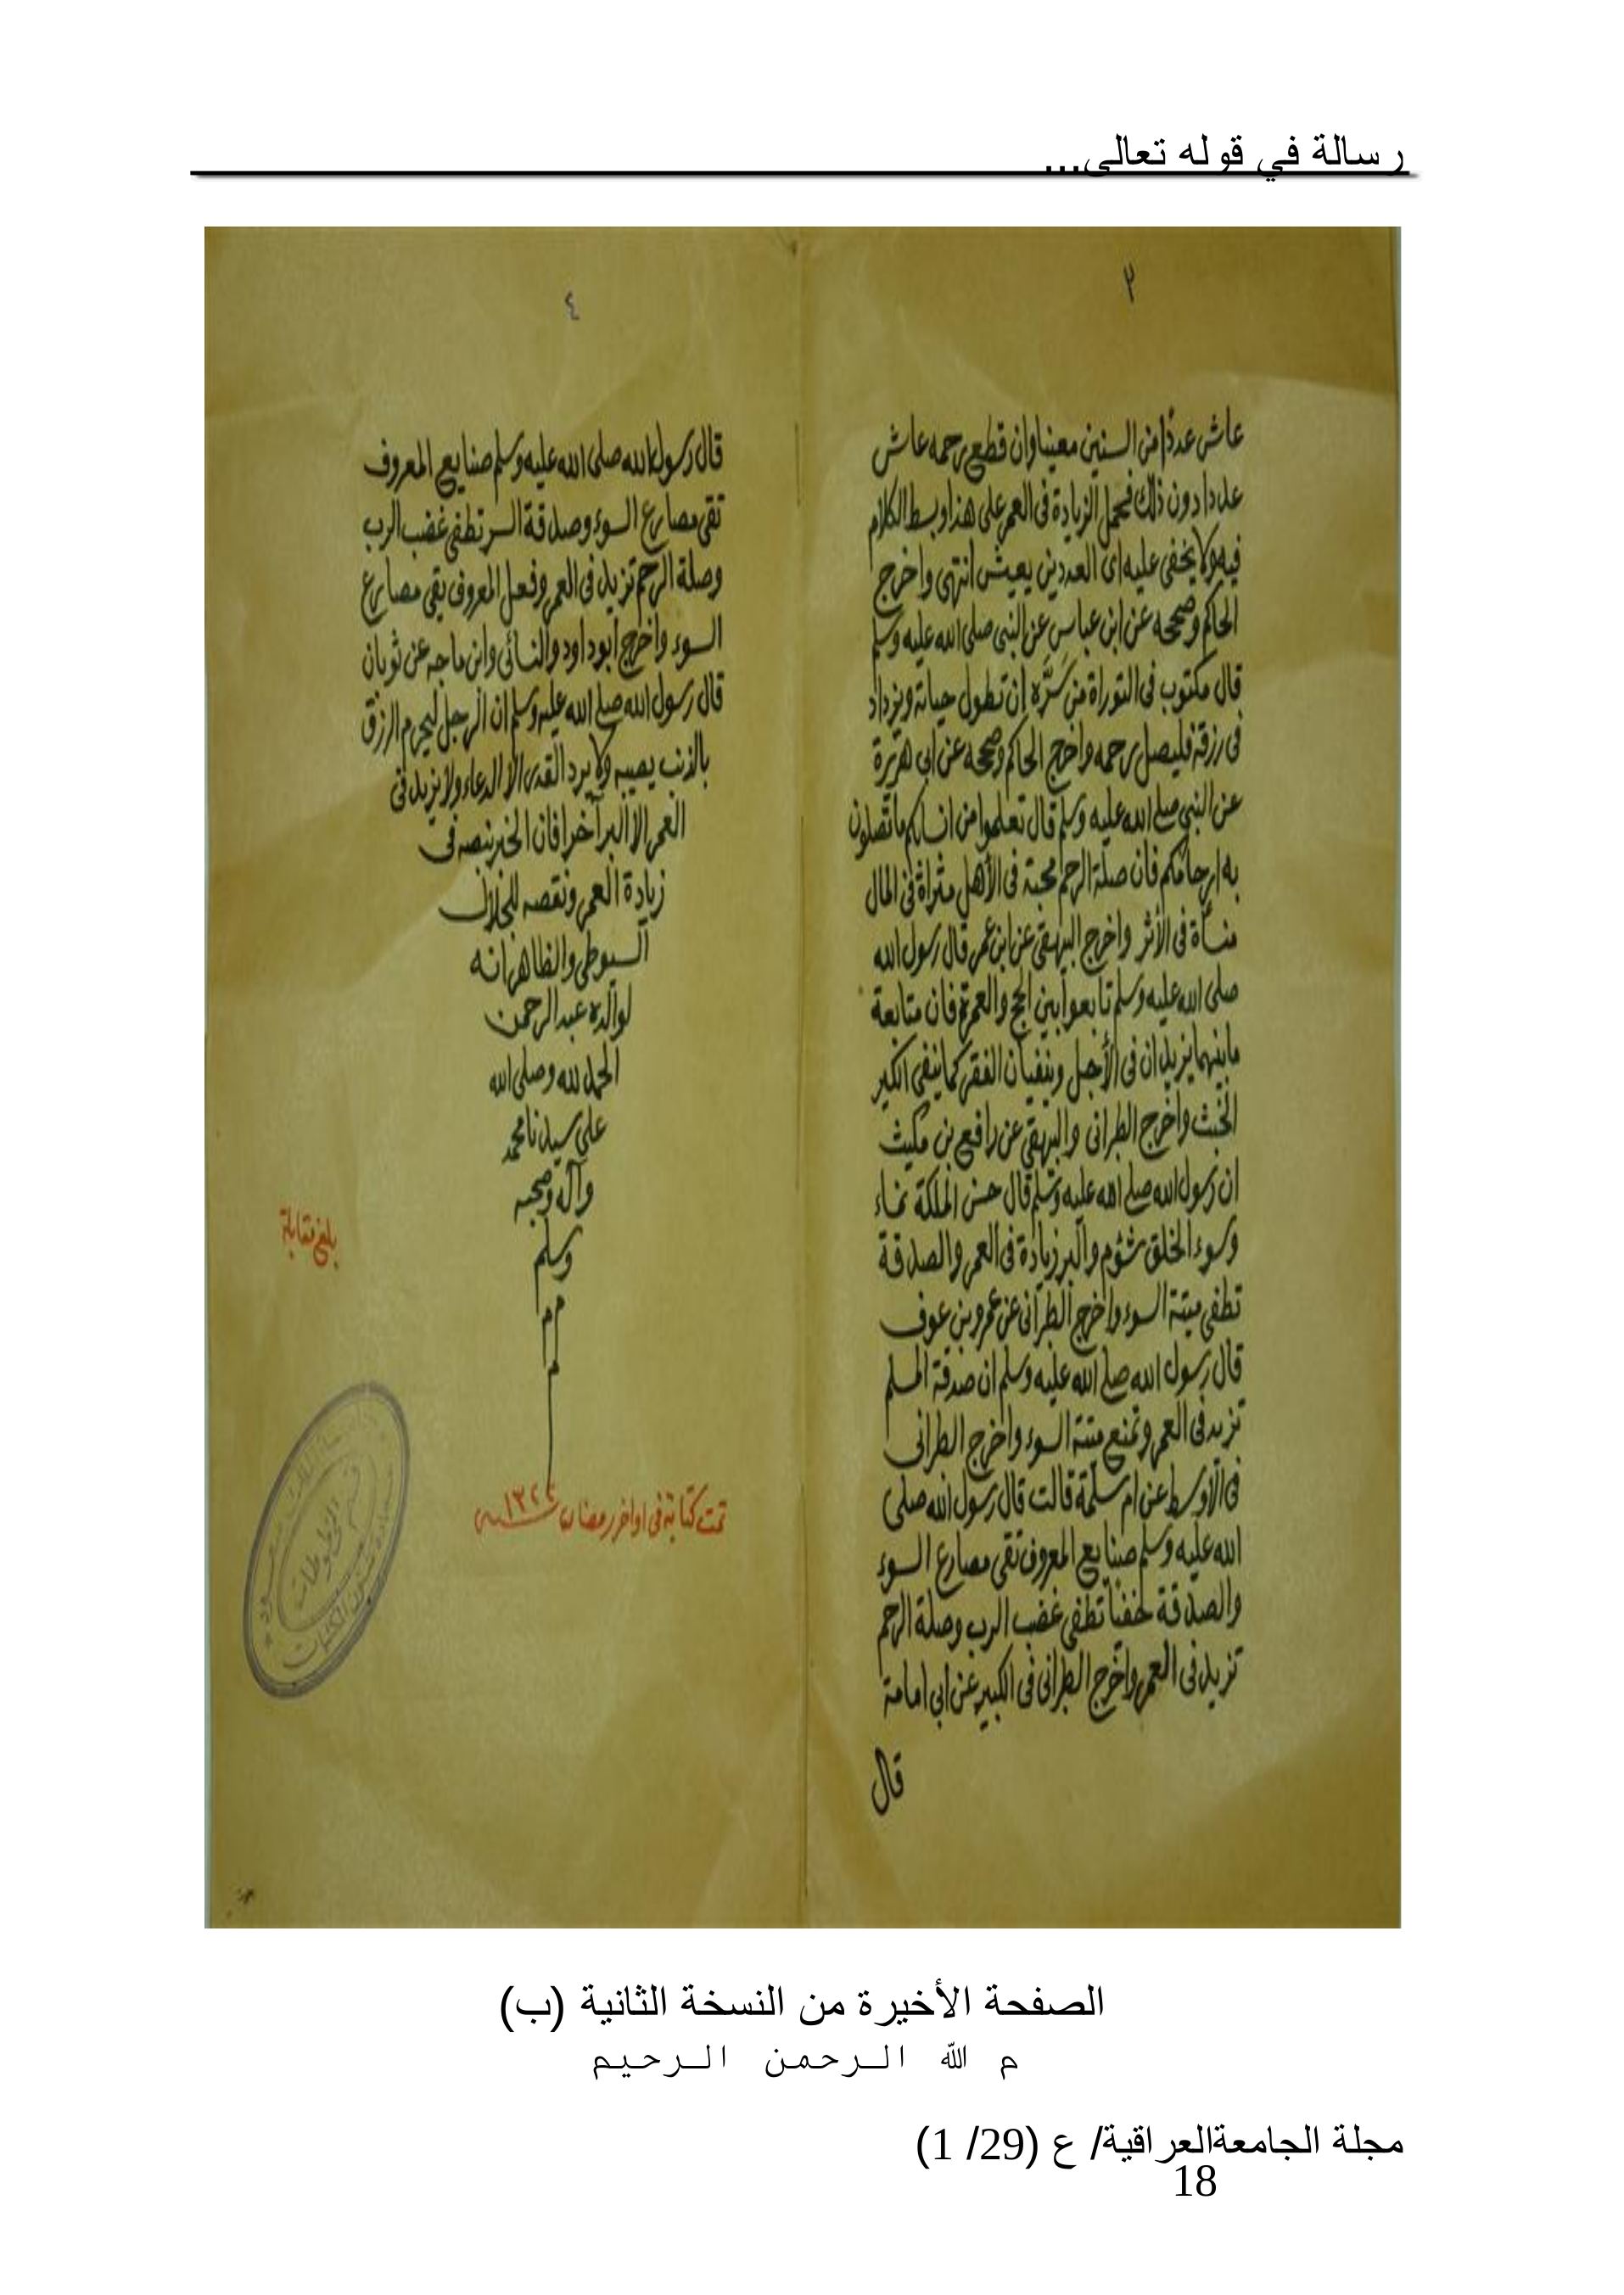 رسالة في قوله تعالى...
٣
عاش عددا من السنين معينا وان قطع رحمه عاش
عددا دون ذلك فحمل الزيادة في العمر على هذا وبسط الكلام
فيه ولا يخفى عليه اى العددين يعيش انتهى واخرج
الحاكم وصححه عن ابن عباس عن النبي صلى الله عليه وسلم
قال مكتوب في التوراة من سَرَّه ان تطول حياته ويزداد
فى رزقه فليصل رحمه واخرج الحاكم وصححه عن ابى هريرة
عن النبي صلى الله عليه وسلم قال تعلموا من انسابكم ما تصلون
به ارحامكم فان صلة الرحم محبة فى الأهل مثراة فى المال
منسأة فى الأثر واخرج البيهقى عن ابن عمر قال رسول الله
صلى الله عليه وسلم تابعوا بين الحج والعمرة فان متابعة
ما بينهما يزيدان فى الأجل وينفيان الفقر كما ينفى الكير
الخبث واخرج الطبرانى والبيهقى عن رافع بن مكيث
ان رسول الله صلى الله عليه وسلم قال حسن الملكة نماء
وسوء الخلق شؤم والبر زيادة فى العمر والصدقة
تطفى ميتة السوء واخرج الطبرانى عن عمرو بن عوف
قال رسول الله صلى الله عليه وسلم ان صدقة المسلم
تزيد فى العمر وتمنع ميتة السوء واخرج الطبرانى
فى الأوسط عن ام سلمة قالت قال رسول الله صلى
الله عليه وسلم صنايع المعروف تقى مصارع السوء
والصدقة خفيا تطفى غضب الرب وصلة الرحم
تزيد فى العمر واخرج الطبرانى فى الكبير عن ابى امامة
قال
٤
قال رسول الله صلى الله عليه وسلم صنايع المعروف
تقى مصارع السوء وصدقة السر تطفى غضب الرب
وصلة الرحم تزيد فى العمر وفعل المعروف يقى مصارع
السوء واخرج ابو داود والنسائى وابن ماجه عن ثوبان
قال رسول الله صلى الله عليه وسلم ان الرجل ليحرم الرزق
بالذنب يصيبه ولا يرد القدر الا الدعاء ولا يزيد فى
العمر الا البر آخر
زيادة العمر ونقصه للجلال
السيوطى والظاهر انه
لوالده عبد الرحمن
الحمد لله وصلى الله
على سيدنا محمد
وآله وصحبه
وسلم
م م
م
بلغ مقابلة
تمت كتابة فى اواخر رمضان سنه ١٣٤٤
المخطوطات
الصفحة الأخيرة من النسخة الثانية (ب)
م الله الرحمن الرحيم
مجلة الجامعةالعراقية/ ع (29/ 1)
18